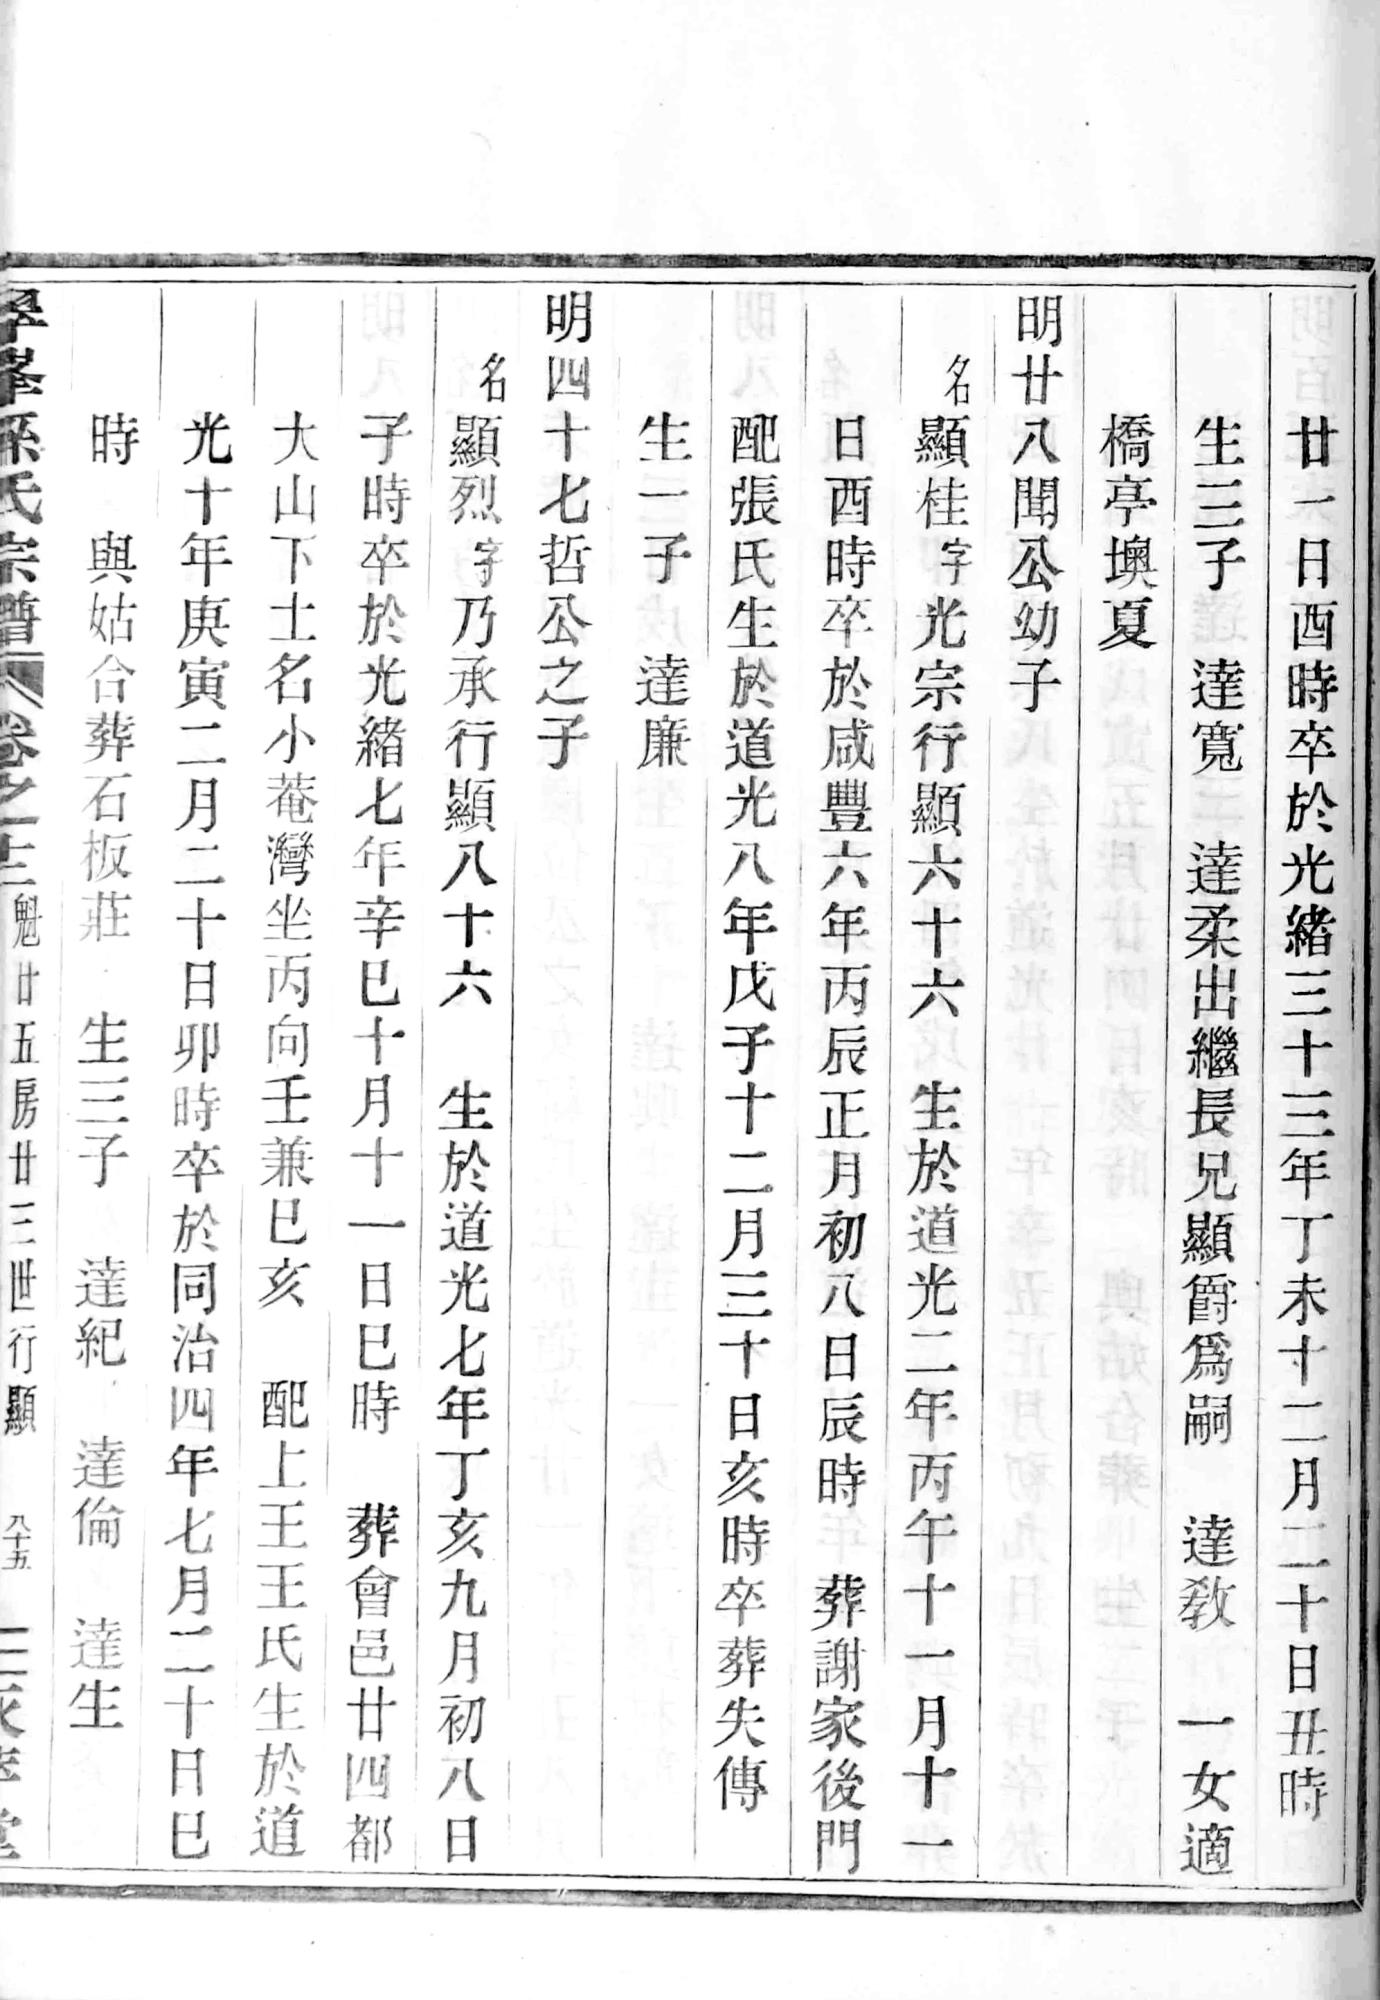 廿一日酉時卒於光緒三十三年丁未十二月二十日丑時
生三子　達寬　達柔出繼長兄顯爵爲嗣　達教　一女適
橋亭墺夏
明廿八聞公幼子
名顯桂字光宗行顯六十六　生於道光二年丙午十一月十一
日酉時卒於咸豐六年丙辰正月初八日辰時　葬謝家後門
配張氏生於道光八年戊子十二月三十日亥時卒葬失傳
生一子　達廉
明四十七哲公之子
名顯烈字乃承行顯八十六　生於道光七年丁亥九月初八日
子時卒於光緒七年辛巳十月十一日巳時　葬會邑廿四都
大山下土名小菴灣坐丙向壬兼巳亥　配上王王氏生於道
光十年庚寅二月二十日卯時卒於同治四年七月二十日巳
時　與姑合葬石板莊　生三子　達紀　達倫　達生
孫氏宗譜　卷之十三　魁廿五房廿三世行顯　八十五　堂